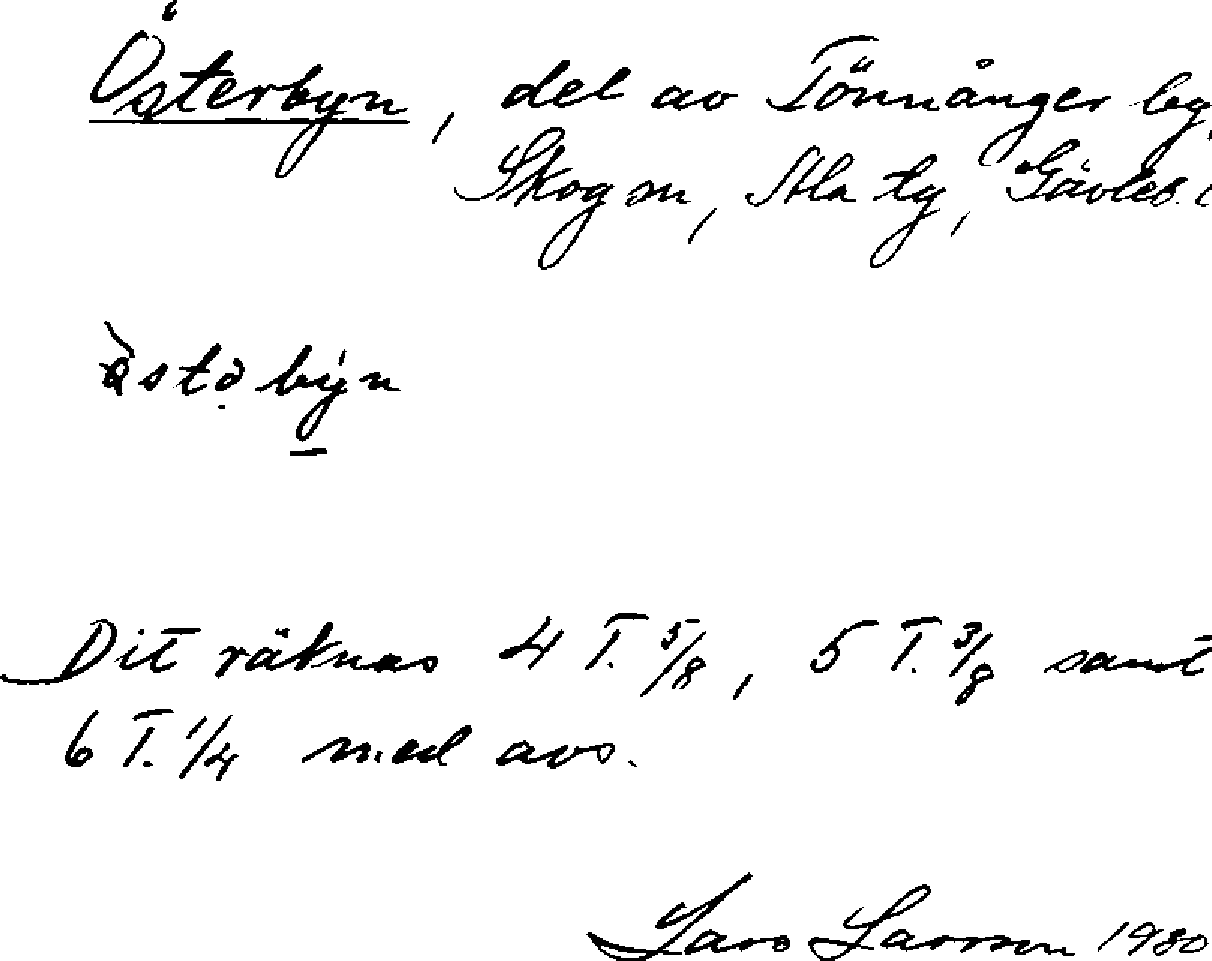 Österbyn, del av Tönnånger by,
Skog sn, Ala tg, Gävleb. l
Dit räknas 4 T. 5/8, 5 T. 3/8 samt
6 T. 1/4 med avs.
Lars Larsson 1980